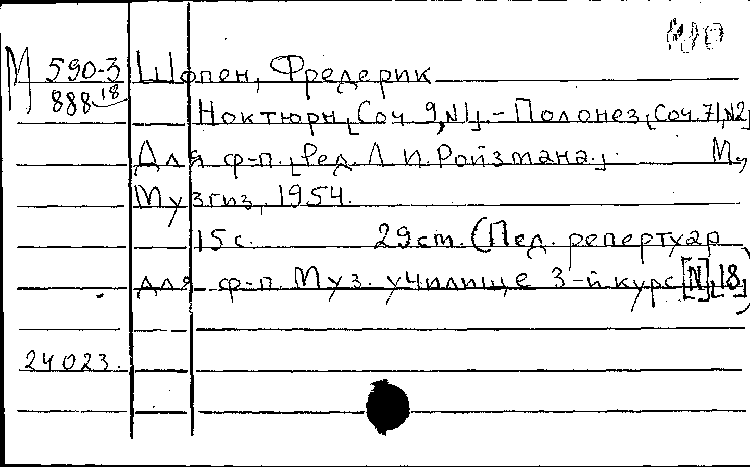 М 590-3 Шопен, Фредерик
888 18
Ноктюрн, [Соч. 9, №1]. - Полонез, [Соч. 71, №2]
Для ф-п. [Ред. Л. И. Ройзмана.] М.,
Музгиз, 1954.
15 с. 29 ст. (Пед. репертуар
для ф-п. Муз. училище 3-й курс [№] [18])
24023.